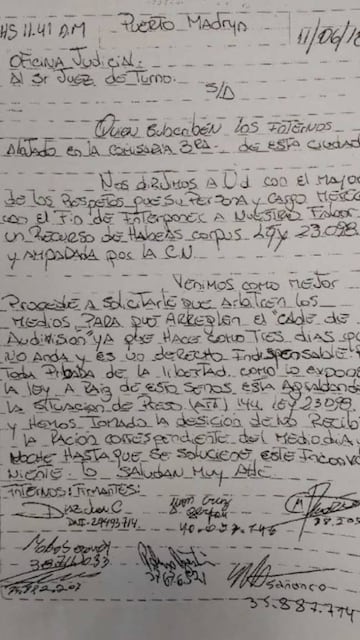 HS 11.41 A.M Puerto Madryn 11/06/18
Oficina Judicial.
Al Sr Juez de Turno.
S/D
Quien subscriben los internos
alojado en la comisaria 3ra de esta ciudad
Nos dirijimos a Ud con el mayor
de los respetos que su persona y cargo merece
con el fin de interponer a nuestro favor
un recurso de habeas corpus Ley 23.098
y amparada por la C.N
Venimos como mejor
procede a solicitarle que arbitren los
medios para que arreglen el "cable de
audivision" ya que hace como tres dias que
no anda y es un derecho indispensable
toda privada de la libertad como lo expone
la ley. A raiz de esto se nos esta agravando
la situacion de preso (Art) 144 ley 23098
y hemos tomado la desicion de no recibir
la racion correspondiente del mediodia
noche hasta que se solucione este inconve
niente. Lo saludan muy atte
Internos: Firmantes:
DNI-29493714
40.
38.20
35.887.714